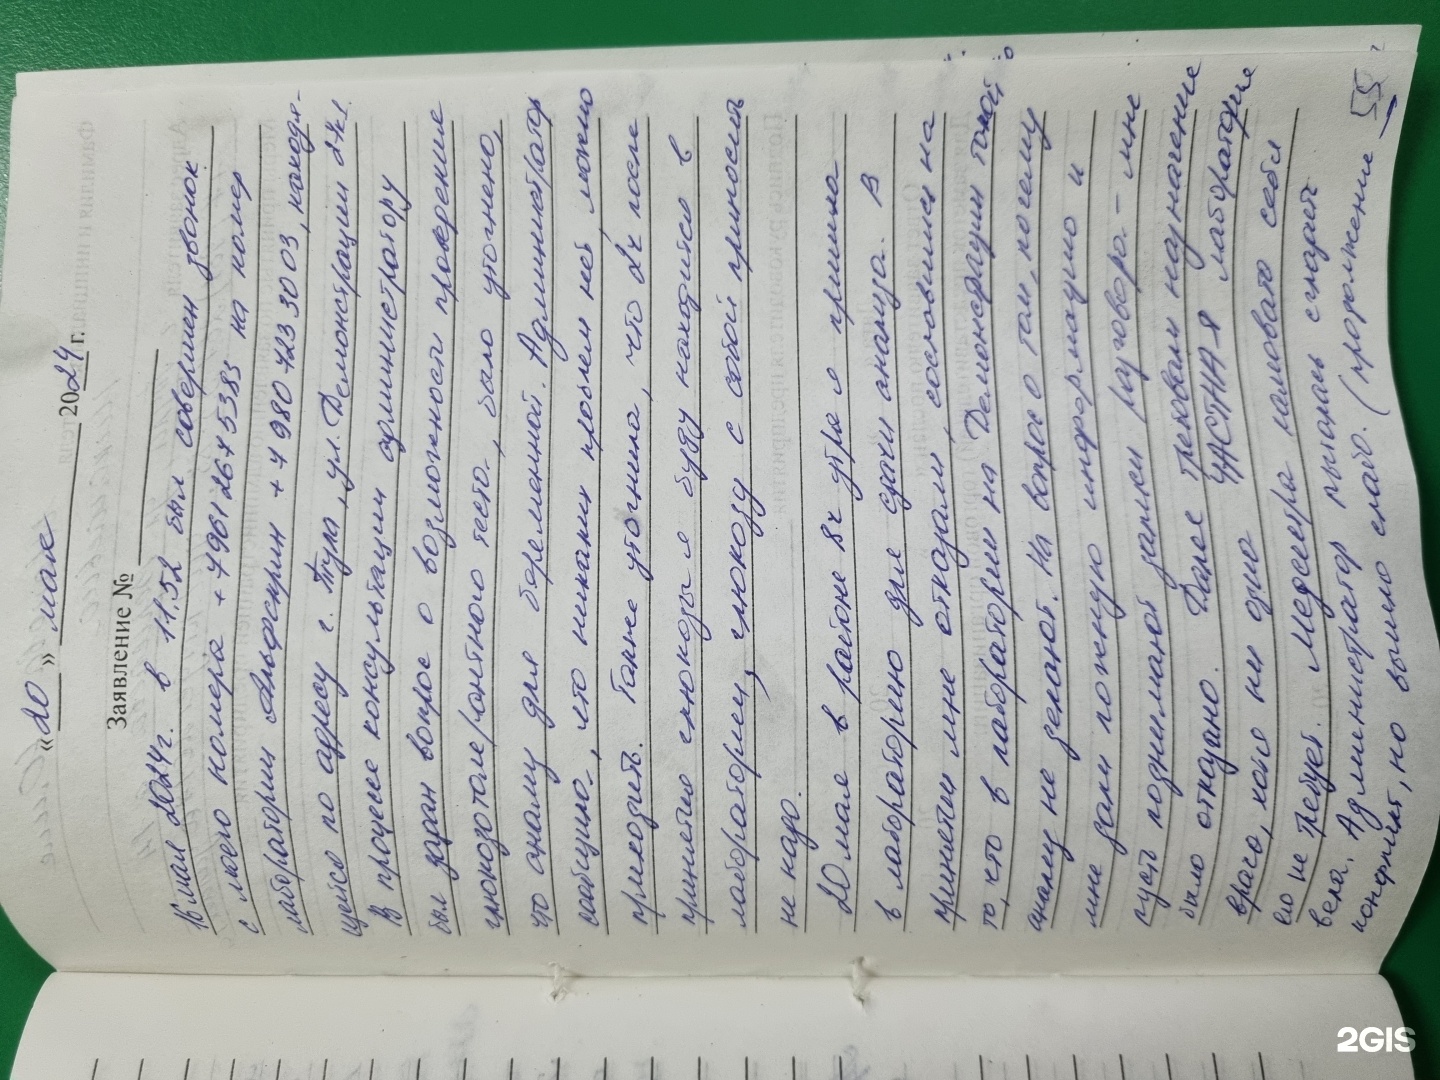 «20» мая 2024 г.
Заявление №
16 мая 2024 г. в 11.52 был совершен звонок
с моего номера +79612675383 на номер
лаборатории +7 980 723 30 03, находя-
щейся по адресу г. Тула, ул. Демонстрации 2к1.
В процессе консультации администратору
был задан вопрос о возможности проверение
глюкозотолерантного теста, было уточнено,
что анализ для беременной. Администратор
сообщила, что никаких проблем нет, можно
приходить. Также уточнила, что 2ч после
принятия глюкозы я буду находится в
лаборатории, глюкозу с собой приносить
не надо.
20 мая в районе 8ч утра я пришла
в лабораторию для сдачи анализа. В
принятии мне отказали, сославшись на
то, что в лаборатории на Демонстрации такой
анализ не делают. На вопрос о том, почему
мне дали ложную информацию и
пусть поднимают записи разговора - мне
было отказано. Далее требовали назначение
врача, хотя ни одна ЧАСТНАЯ лаборатория
его не требует. Медсестра хамовато себя
вела. Администратор пыталась сгладить
конфликт, но вышло слабо. (продолжение →
2GIS